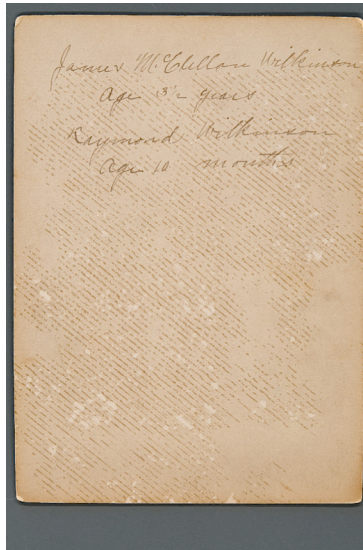 James McClellan Wilkinson
Age 3½ years
Raymond Wilkinson
Age 10 months